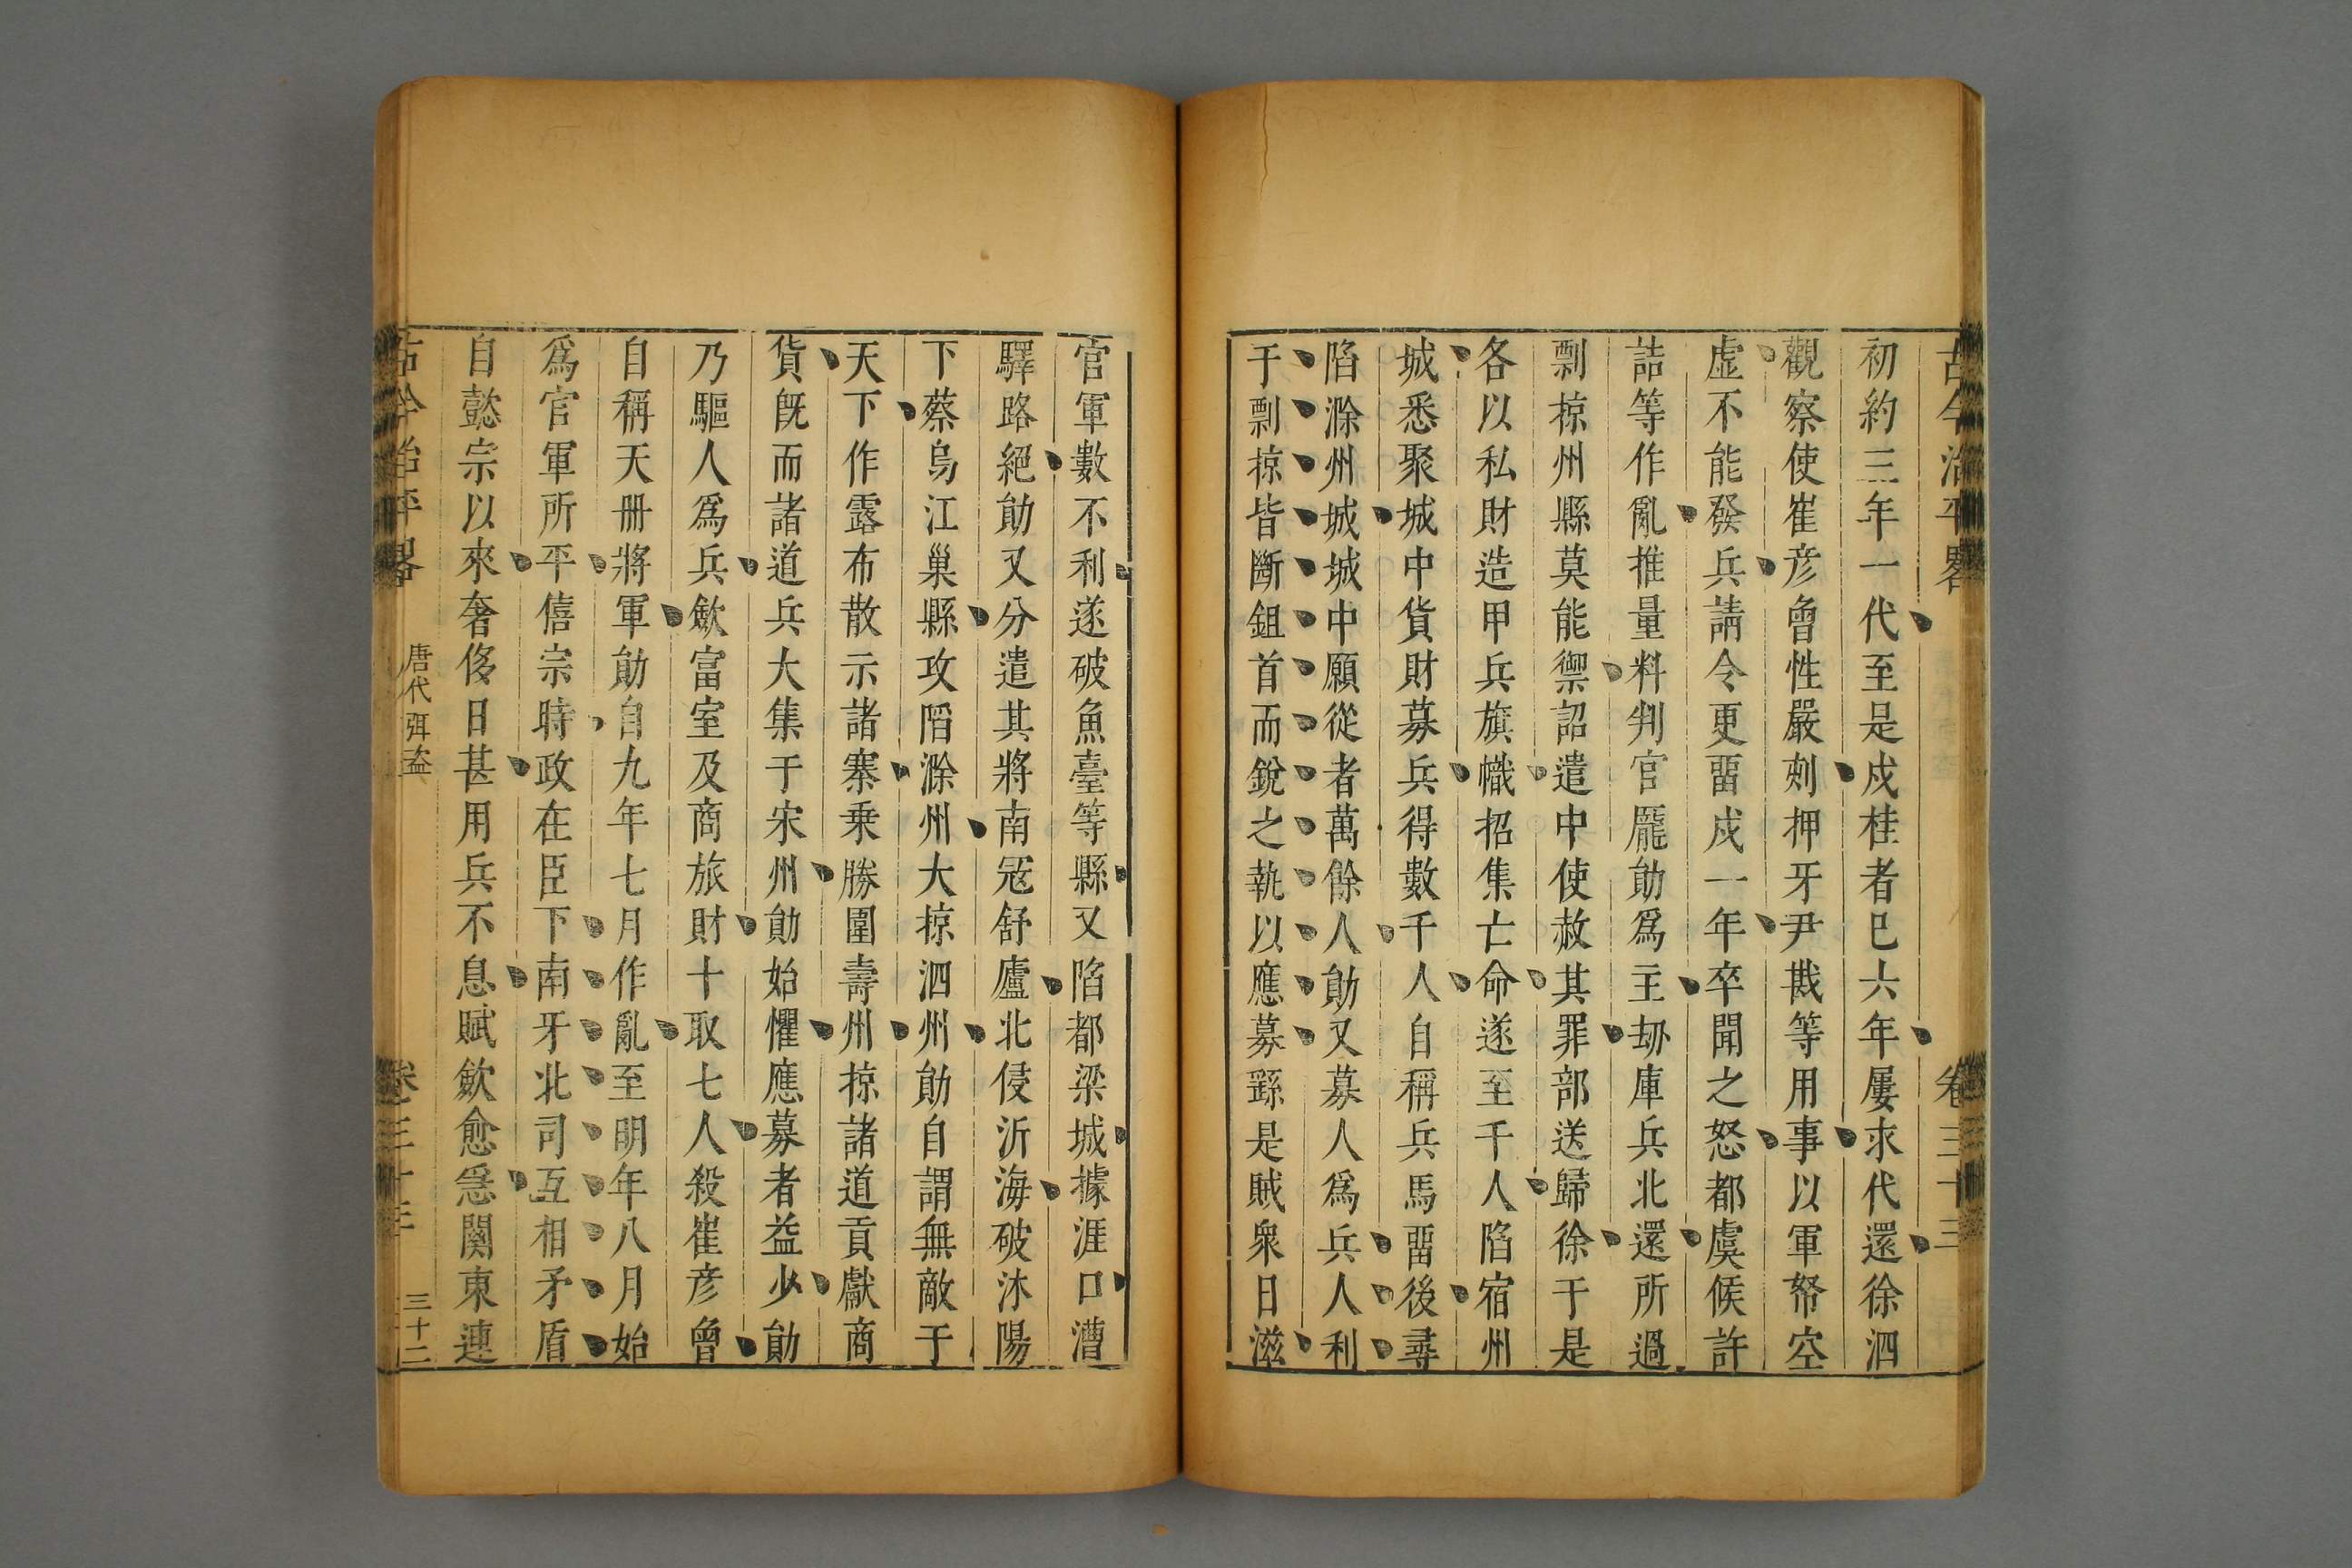 古今治平畧
卷三十三
初約三年一代至是戍桂者巳六年屢求代還徐泗
觀察使崔彦曾性嚴刻押牙尹戡等用事以軍帑空
虚不能發兵請令更畱戍一年卒聞之怒都虞候許
詰等作亂推量料判官龎勛爲主刼庫兵北還所過
剽掠州縣莫能禦詔遣中使赦其罪部送歸徐于是
各以私財造甲兵旗幟招集亡命遂至千人陷宿州
城悉聚城中貨財募兵得數千人自稱兵馬畱後尋
陷滁州城城中願從者萬餘人勛又募人爲兵人利
于剽掠皆斷鉏首而銳之執以應募繇是賊衆日滋
官軍數不利遂破魚臺等縣又陷都梁城據涯口漕
驛路絕勛又分遣其將南寇舒廬北侵沂海破沐陽
下蔡烏江巢縣攻陷滁州大掠泗州勛自謂無敵于
天下作露布散示諸寨乗勝圍壽州掠諸道貢獻商
貨旣而諸道兵大集于宋州勛始懼應募者益少勛
乃驅人爲兵斂富室及商旅財十取七人殺崔彦曾
自稱天册將軍勛自九年七月作亂至明年八月始
爲官軍所平僖宗時政在臣下南牙北司互相矛盾
自懿宗以來奢侈日甚用兵不息賦斂愈急關東連
古今治平畧
唐代弭盜
卷三十三
三十二